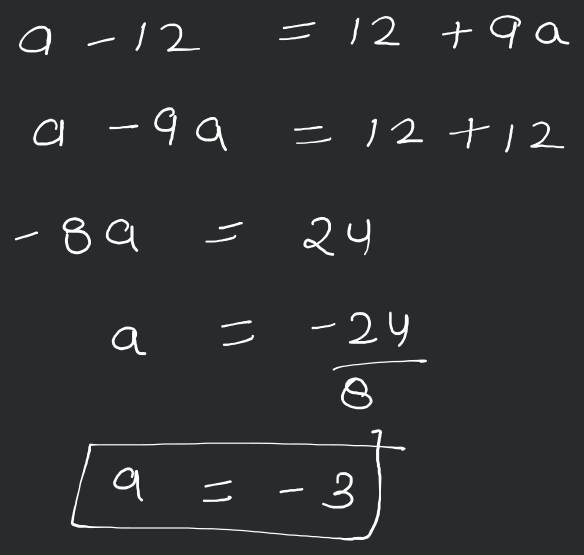 a - 12 = 12 + 9a
a - 9a = 12 + 12
- 8a = 24
a = -24/8
a = - 3